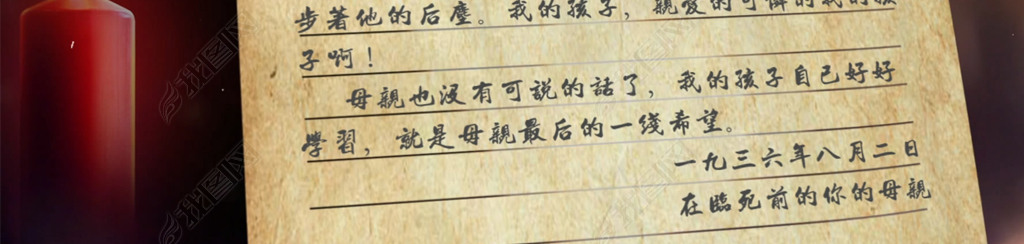 步著他的后塵。我的孩子，親愛的可憐的我的孩
子啊！
母親也沒有可説的話了，我的孩子自己好好
學習，就是母親最后的一綫希望。
一九三六年八月二日
在臨死前的你的母親